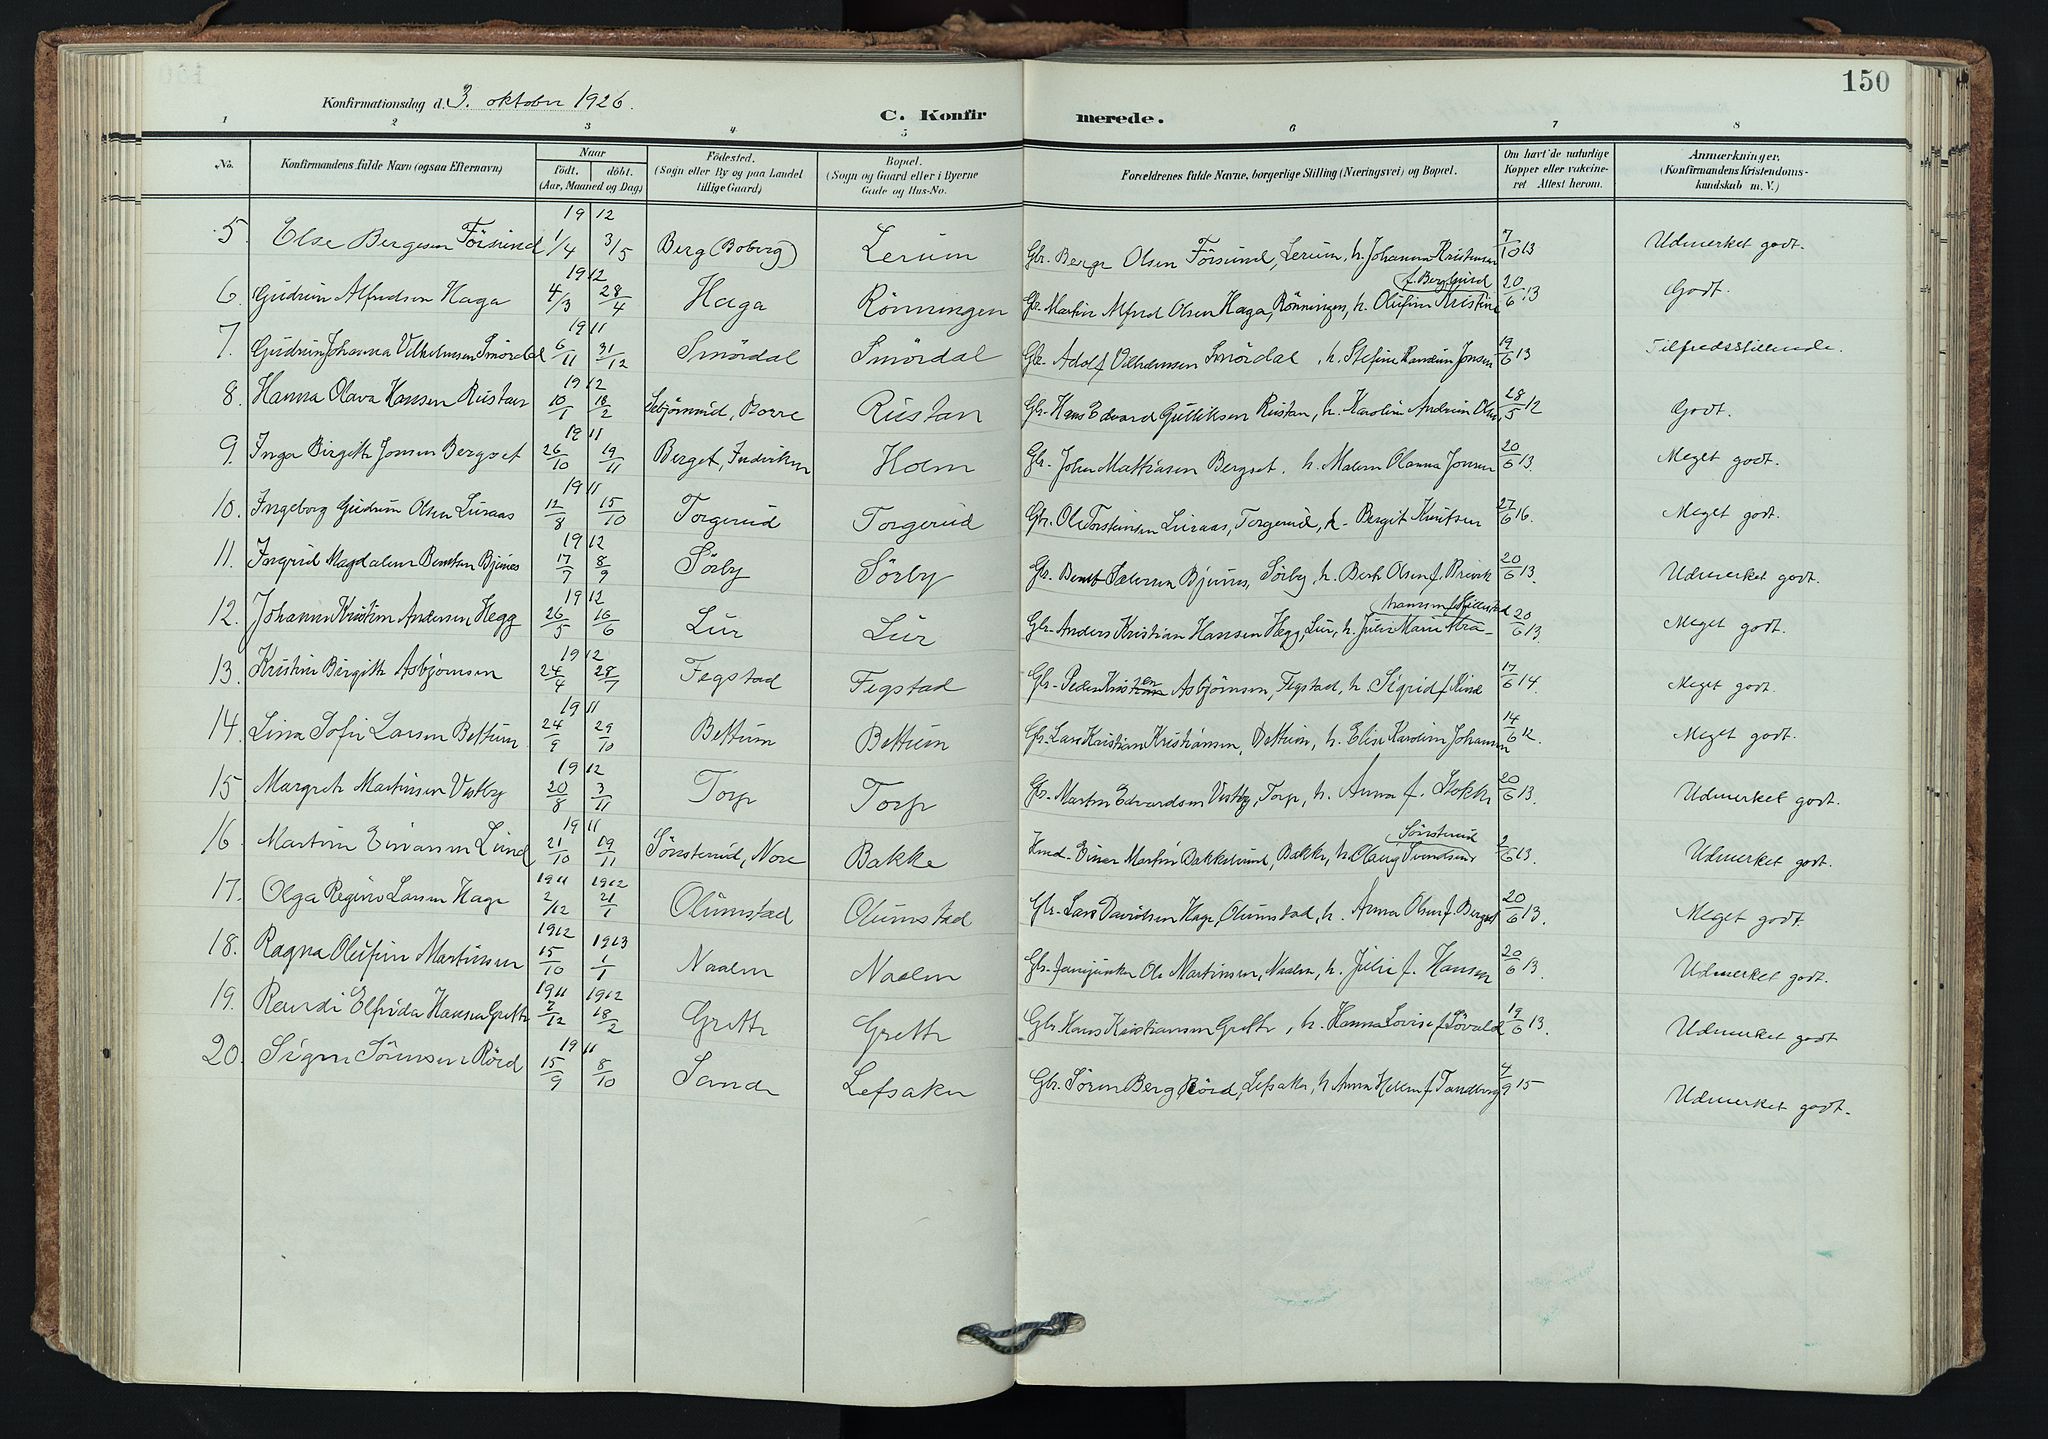 150
Konfirmationsdag d. 3. oktober 1926.
C. Konfirmerede.
1 2 3 4 5 6 7 8
No. Konfirmandens fulde Navn (ogsaa Efternavn) Naar født, døbt. (Aar, Maaned og Dag) Födested. (Sogn eller By og paa Landet tillige Gaard) Bopæl. (Sogn og Gaard eller i Byerne Gade og Hus-No. Forældrenes fulde Navne, borgerlige Stilling (Næringsvei) og Bopæl. Om havt de naturlige Kopper eller vakcineret Attest herom. Anmærkninger. (Konfirmandens Kristendomskundskab m. V.)
5 Else Bergesen Försund 1912 1/4 3/5 Berg (Boberg) Lerum Gbr. Berge Olsen Försund, Lerum, h. Johanna Kristensen 7/10 13 Udmerket godt.
6. Gudrun Alfredsen Haga 1912 4/3 28/4 Haga Rönningen Gbr. Martin Alfred Olsen Haga, Rönningen, h. Olufine Kristine 20/6 13 Godt.
7. Gudrun Johanna Vilhelmsen Smördal 1911 6/11 31/12 Smördal Smördal Gbr. Adolf Vilhelmsen Smördal, h. Stefine Jonsen 19/6 13 Tilfredsstillende.
8. Hanna Olava Hansen Rustan 1912 10/1 18/2 Borre Rustan Gbr. Hans Edvard Gulliksen Rustan, h. Karoline Andrine Olsen 28/5 12 Godt.
9. Inga Birgitte Jonsen Bergset 1911 26/10 19/11 Berget, Holm Gbr. John Mathiasen Bergset, h. Malene Olanna Jonsen 20/6 13. Meget godt.
10. Ingeborg Gudrun Olsen Luraas 1911 12/8 15/10 Torgerud Torgerud Gbr. Ole Torsteinsen Luraas, Torgerud, h. Bergit Knutsen 27/6 16. Meget godt.
11. Ingrid Magdalene Bentsen Bjunes 1912 17/7 8/9 Sörby Sörby Gbr. Bendt Bjunes, Sörby, h. Berte Olsen f. 20/6 13. Udmerket godt.
12. Johanne Kristine Andersen Hegg 1912 26/5 16/6 Lur Lur Gbr. Anders Kristian Hansen Hegg, Lur, h. Julie Marie Abrahamsen 20/6 13. Meget godt.
13. Kristine Birgitte Asbjörnsen 1912 24/4 28/7 Fegstad Fegstad Gbr. Peder Asbjörnsen, Fegstad, h. Sigrid f. Rind 17/6 14. Meget godt.
14. Lina Sofie Larsen Bettum 1911 24/9 29/10 Bettum Bettum Gbr. Lars Kristian Kristiansen, Bettum, h. Elise Karoline Johansen 14/6 12. Meget godt.
15 Margrete Martinsen Vestby 1912 20/8 3/11 Torp Torp Gbr. Martin Edvardsen Vestby, Torp, h. Anna f. Stokke 20/6 13. Udmerket godt.
16. Martine Einarsen Lund 1911 21/10 19/11 Sönsterud, Nore Bakke Einar Martin Bakkelund, Bakke, h. Olaug Svendsen Sönsterud 2/6 13. Udmerket godt.
17. Olga Regine Larsen Hage 1911 2/12 1912 21/1 Olumstad Olumstad Gbr. Lars Davidsen Hage, Olumstad, h. Anna Olsen f. Berget 20/6 13. Meget godt.
18. Ragna Olufine Martinsen 1912 15/10 1913 1/1 Naalen Naalen Gbr. Ole Martinsen, Naalen, h. Julie f. Hansen 20/6 13. Udmerket godt.
19. Randi Elfrida Hansen Grette 1911 7/12 1912 18/2 Grette Grette Gbr. Hans Kristiansen Grette, h. Hanna Lovise f. Lövald 19/6 13. Udmerket godt
20. Signe Sörensen Rörd 1911 15/9 8/10 Sande Lefsaker Gbr. Sören Berg Rörd, Lefsaker, h. Anna Helene f. Tandberg 4/9 15 Udmerket godt.